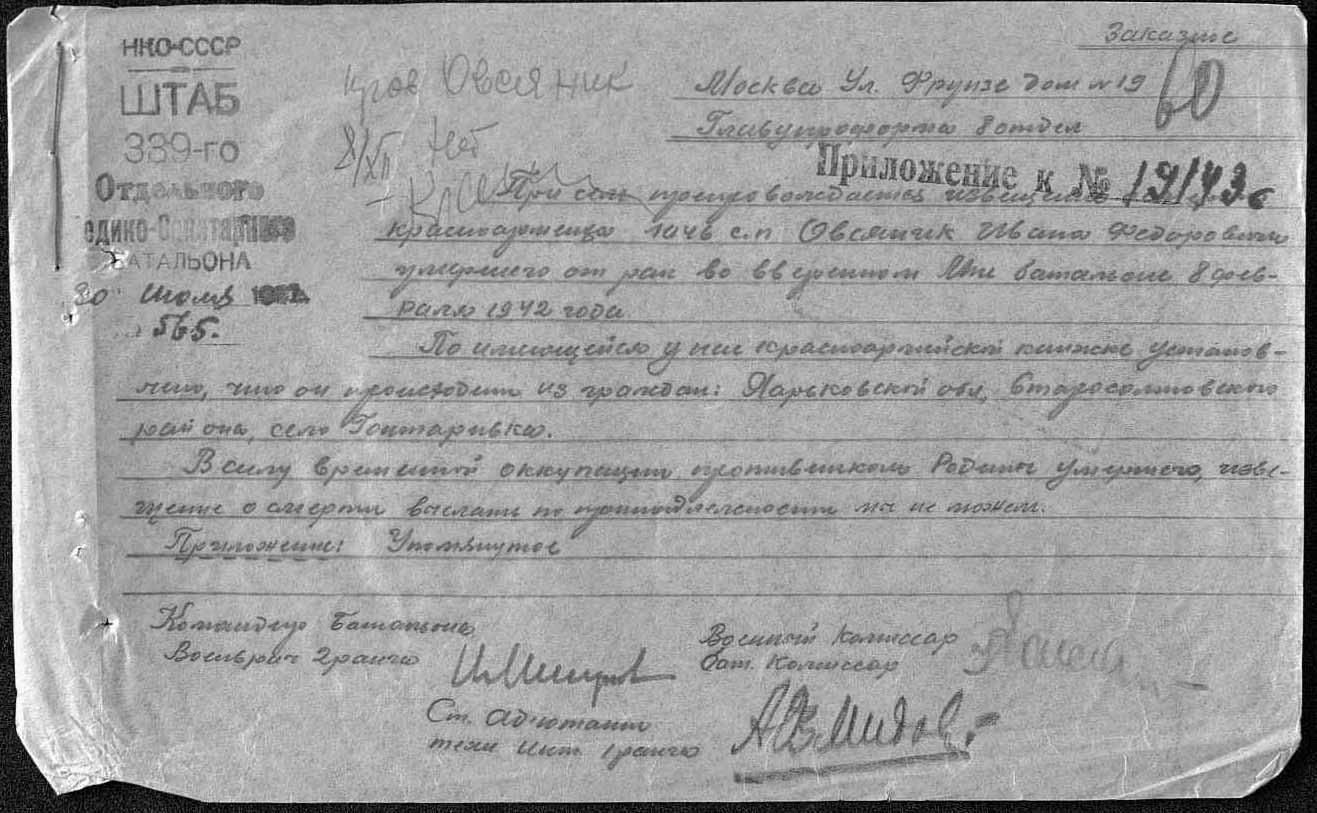 НКО-СССР
ШТАБ
339-го
Отдельного
едико-Санитарного
БАТАЛЬОНА
30 Июля 1942
565.
Заказное
Москва Ул. Фрунзе дом №19
60
Главупроформа 8 отдел
Овсяник
8/XII Нет
Приложение к № 19143с
При сем препровождается извещение
красноармейца 1046 с.п Овсяник Ивана Федоровича
умершего от ран во вверенном Мне батальоне 8 фев-
раля 1942 года
По имеющейся у нег красноармейской книжке установ-
лено, что он происходит из граждан: Харьковской обл, Старосалтовского
района, село Гонтаривка.
В силу временной оккупации противником Родины умершего, изве-
щение о смерти выслать по принадлежности мы не можем.
Приложение: Упомянутое
Командир Батальона
Военврач 2 ранга
Военный Комиссар
бат. Комиссар
Ст. Адъютант
техн инт. 1 ранга